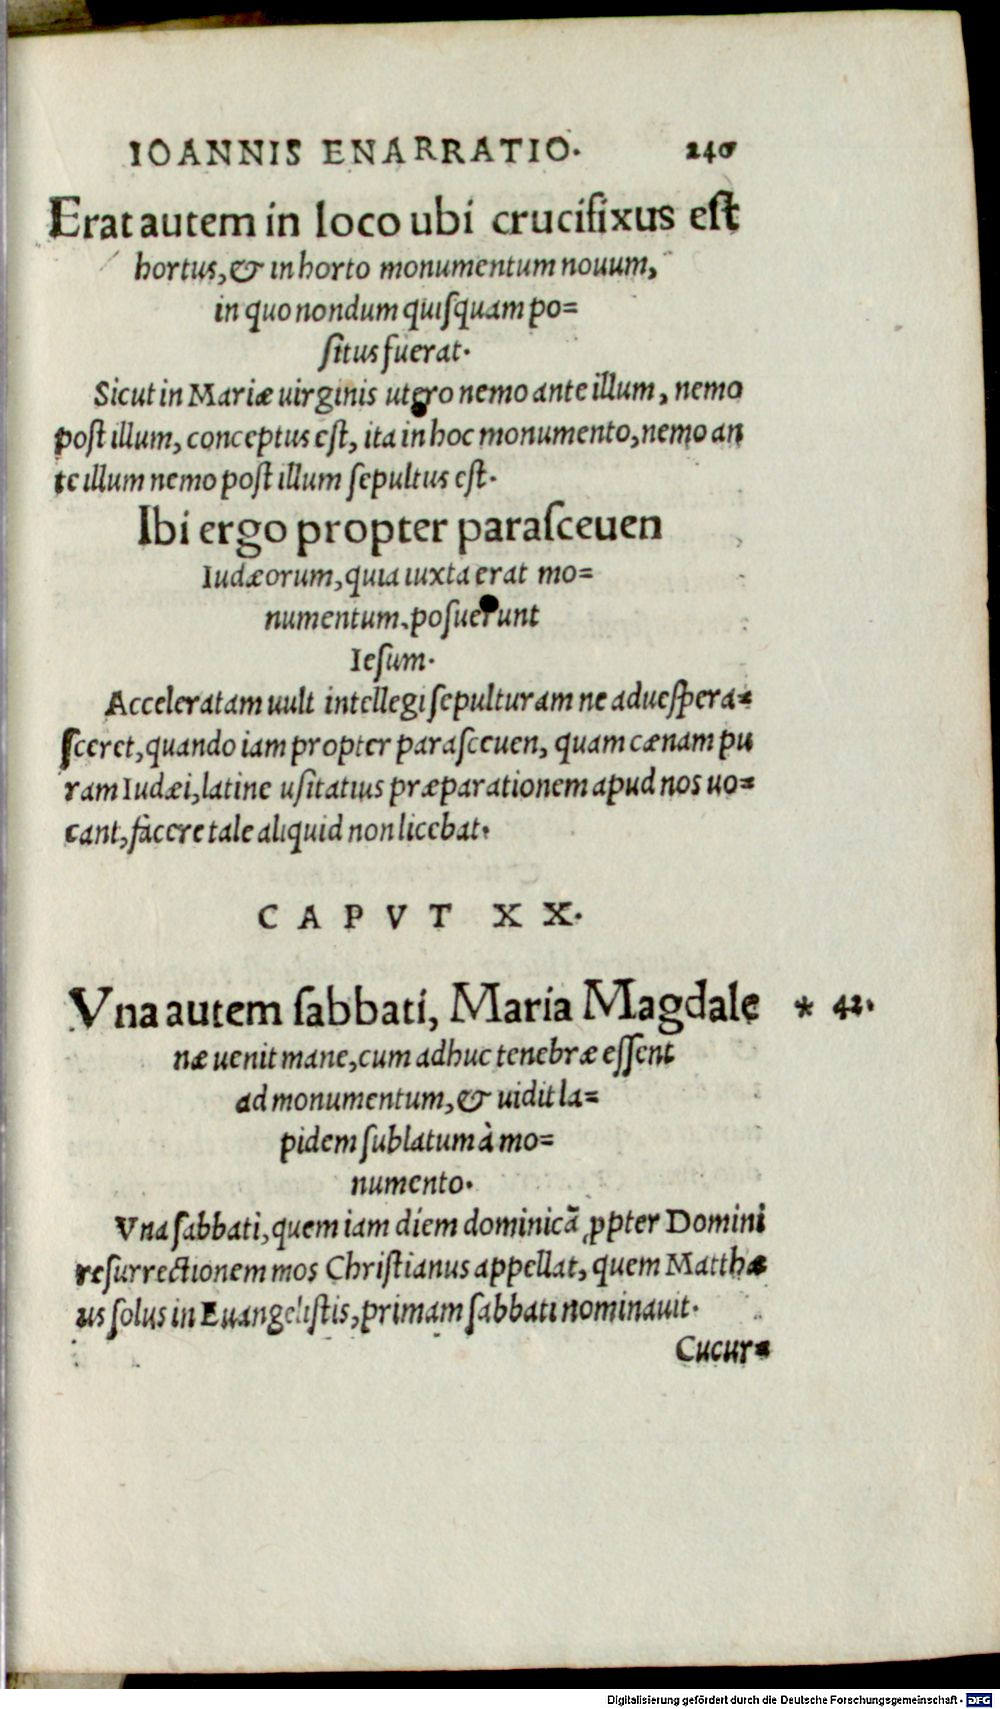 IOANNIS ENARRATIO. 240
Erat autem in loco ubi crucifixus eſt
hortus, & in horto monumentum nouum,
in quo nondum quiſquam po=
ſitus fuerat.
Sicut in Mariæ uirginis utero nemo ante illum, nemo
poſt illum, conceptus eſt, ita in hoc monumento, nemo an
te illum nemo poſt illum ſepultus eſt.
Ibi ergo propter paraſceuen
Iudæorum, quia iuxta erat mo=
numentum, poſuerunt
Ieſum.
Acceleratam uult intellegi ſepulturam ne adueſpera=
ſceret, quando iam propter paraſceuen, quam cænam pu
ram Iudæi, latine uſitatius præparationem apud nos uo=
cant, facere tale aliquid non licebat.
CAPVT XX.
Vna autem ſabbati, Maria Magdale * 42.
næ uenit mane, cum adhuc tenebræ eſſent
ad monumentum, & uidit la=
pidem ſublatum à mo=
numento.
Vna ſabbati, quem iam diem dominicã ꝓpter Domini
reſurrectionem mos Chriſtianus appellat, quem Matthæ
us ſolus in Euangeliſtis, primam ſabbati nominauit.
Cucur=
Digitalisierung gefördert durch die Deutsche Forschungsgemeinschaft - DFG